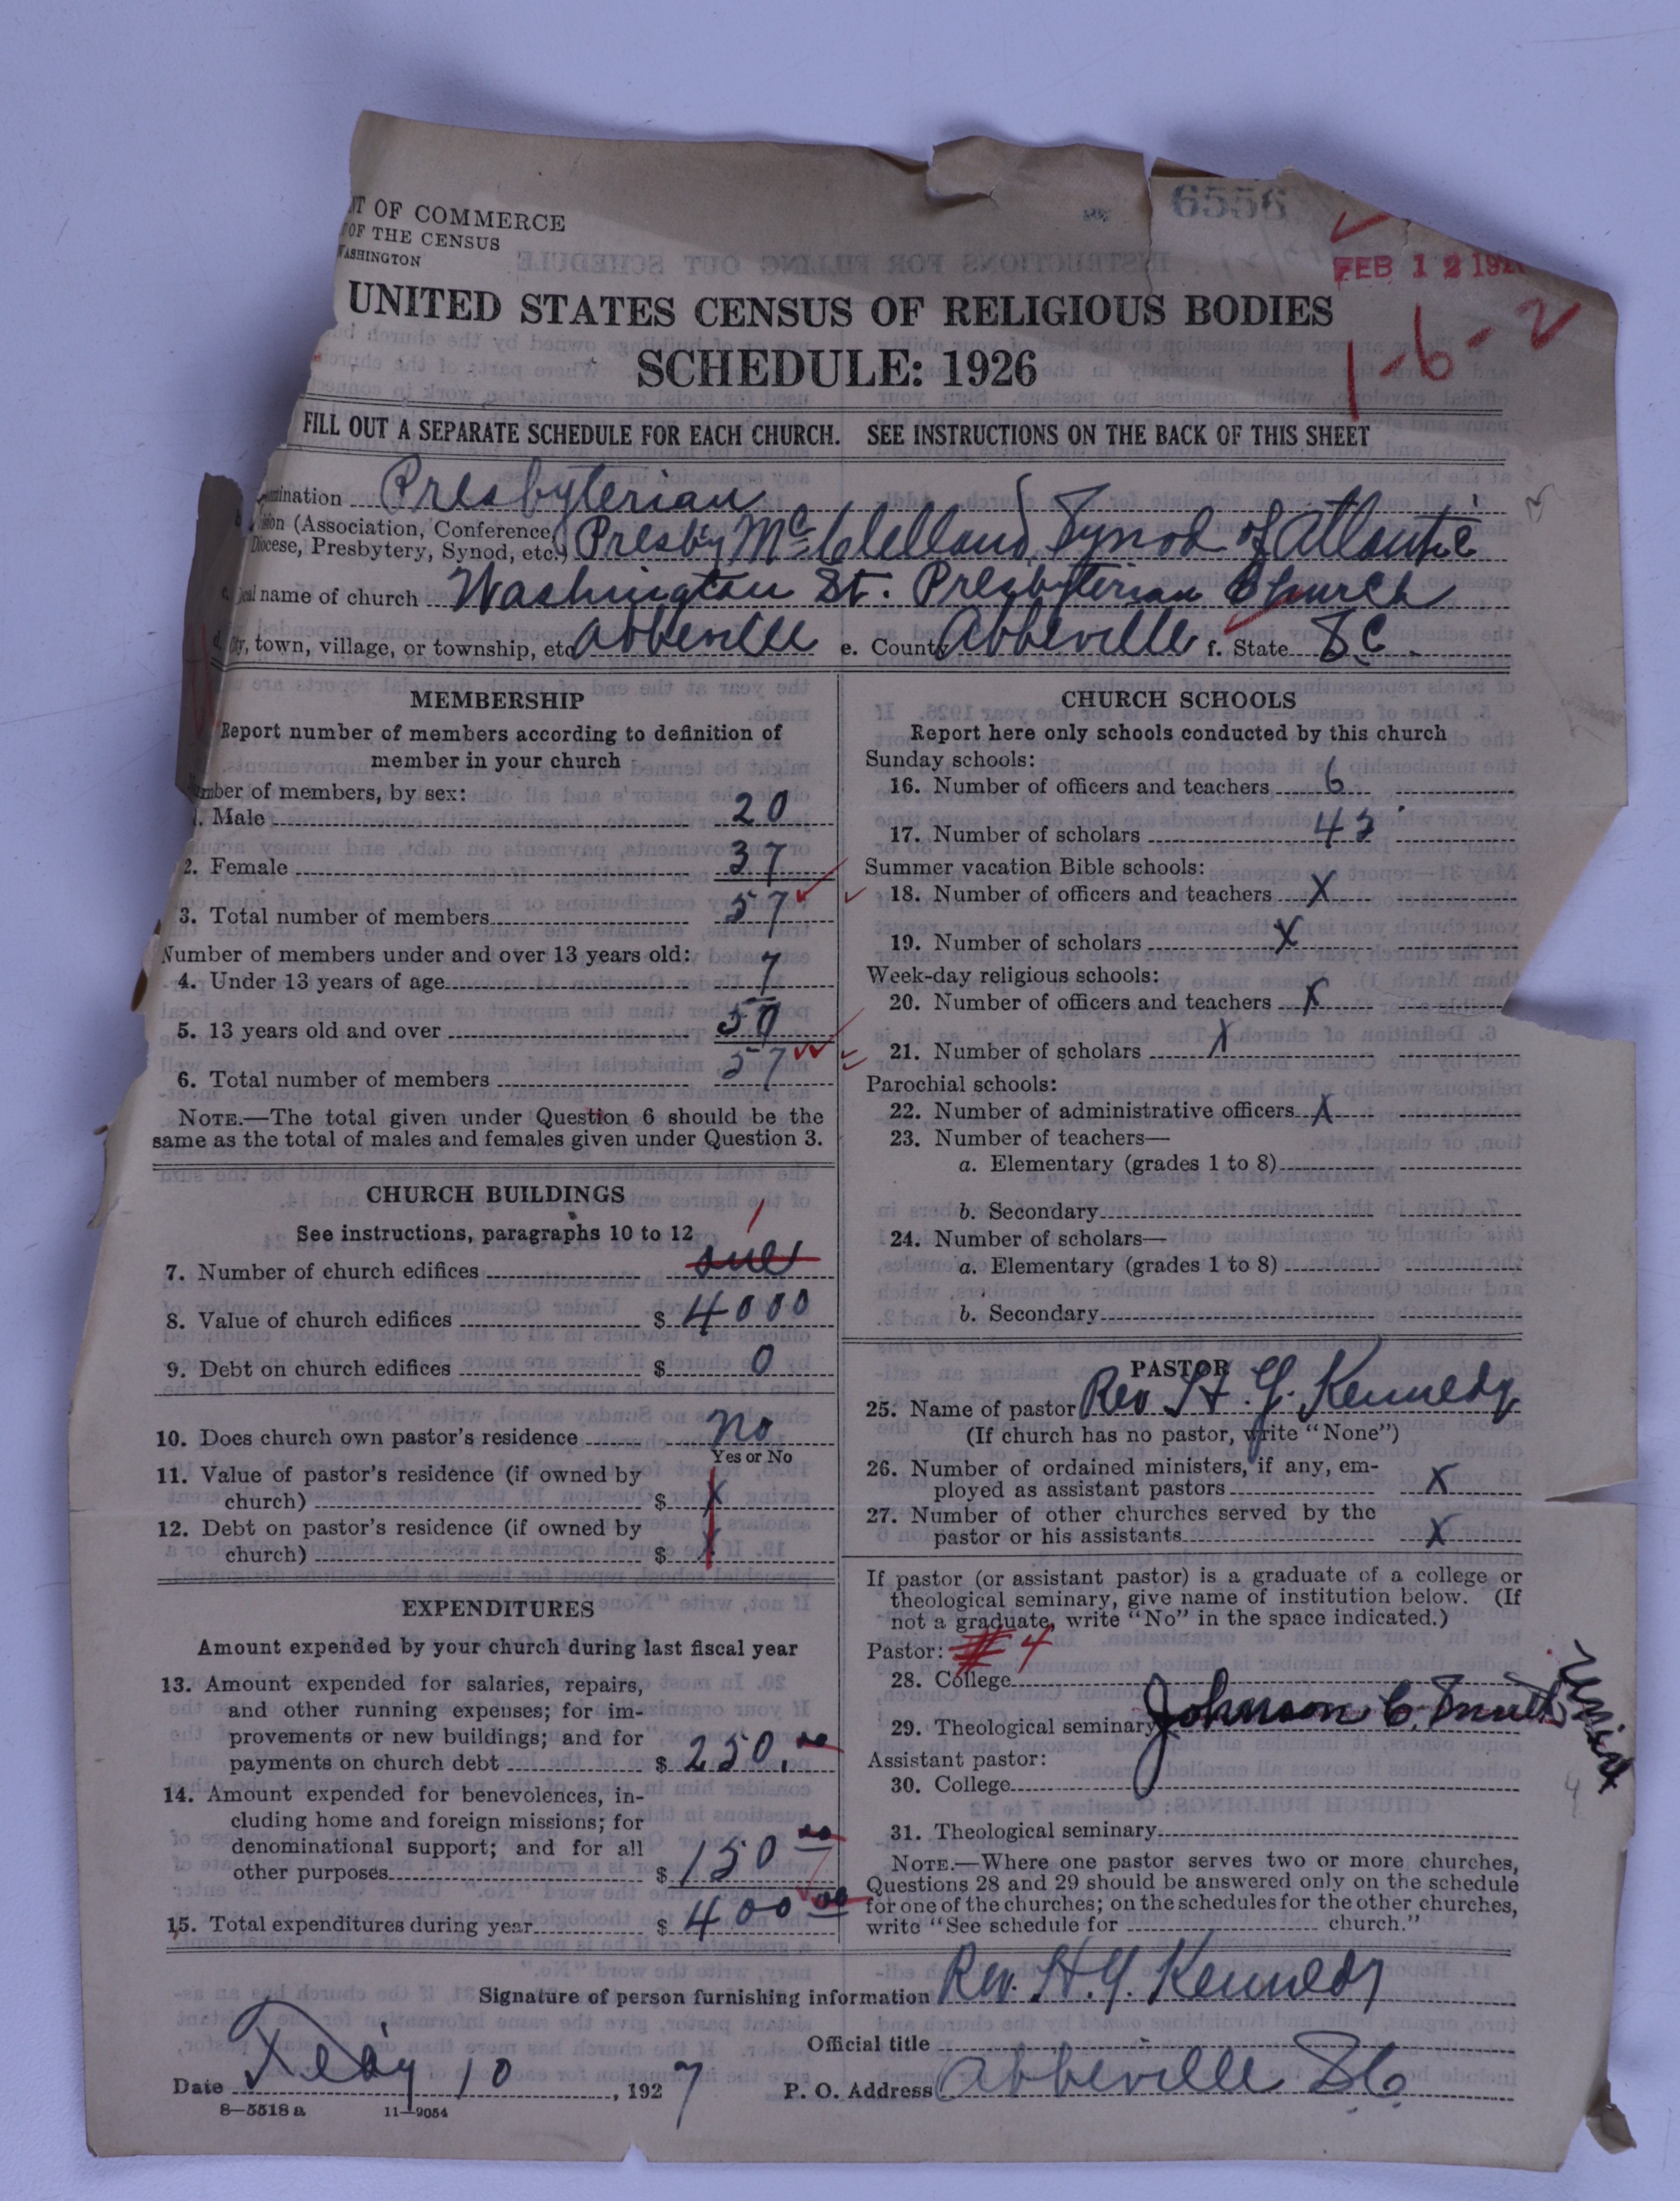 6556
T OF COMMERCE
OF THE CENSUS
WASHINGTON
FEB 12 192
UNITED STATES CENSUS OF RELIGIOUS BODIES
SCHEDULE: 1926
1-6-2
FILL OUT A SEPARATE SCHEDULE FOR EACH CHURCH. SEE INSTRUCTIONS ON THE BACK OF THIS SHEET
mination Presbyterian
b. sion (Association, Conference, Diocese, Presbytery, Synod, etc.) Presby McClelland Synod of Atlantic
c. cal name of church Washington St. Presbyterian Church
d. ity, town, village, or township, etc. Abbeville e. County Abbeville f. State S.C.
MEMBERSHIP
Report number of members according to definition of
member in your church
mber of members, by sex:
1. Male 20
2. Female 37
3. Total number of members 57
Number of members under and over 13 years old:
4. Under 13 years of age 7
5. 13 years old and over 50
6. Total number of members 57
NOTE.—The total given under Question 6 should be the
same as the total of males and females given under Question 3.
CHURCH BUILDINGS
See instructions, paragraphs 10 to 12
7. Number of church edifices one 1
8. Value of church edifices $ 4000
9. Debt on church edifices $ 0
10. Does church own pastor's residence No
Yes or No
11. Value of pastor's residence (if owned by
church) $ X
12. Debt on pastor's residence (if owned by
church) $ X
EXPENDITURES
Amount expended by your church during last fiscal year
13. Amount expended for salaries, repairs,
and other running expenses; for im-
provements or new buildings; and for
payments on church debt $ 250.00
14. Amount expended for benevolences, in-
cluding home and foreign missions; for
denominational support; and for all
other purposes $ 150 00
15. Total expenditures during year $ 400 00
CHURCH SCHOOLS
Report here only schools conducted by this church
Sunday schools:
16. Number of officers and teachers 6
17. Number of scholars 43
Summer vacation Bible schools:
18. Number of officers and teachers X
19. Number of scholars X
Week-day religious schools:
20. Number of officers and teachers X
21. Number of scholars X
Parochial schools:
22. Number of administrative officers X
23. Number of teachers—
a. Elementary (grades 1 to 8)
b. Secondary
24. Number of scholars—
a. Elementary (grades 1 to 8)
b. Secondary
PASTOR
25. Name of pastor Rev. H. G. Kennedy
(If church has no pastor, write "None")
26. Number of ordained ministers, if any, em-
ployed as assistant pastors X
27. Number of other churches served by the
pastor or his assistants X
If pastor (or assistant pastor) is a graduate of a college or
theological seminary, give name of institution below. (If
not a graduate, write "No" in the space indicated.)
Pastor: # 4
28. College
29. Theological seminary Johnson C. Smith
Assistant pastor:
30. College
31. Theological seminary
NOTE.—Where one pastor serves two or more churches,
Questions 28 and 29 should be answered only on the schedule
for one of the churches; on the schedules for the other churches,
write "See schedule for church."
Signature of person furnishing information Rev. H. G. Kennedy
Official title
Date Feby 10, 1927 P. O. Address Abbeville S.C.
8-5518a 11-9054